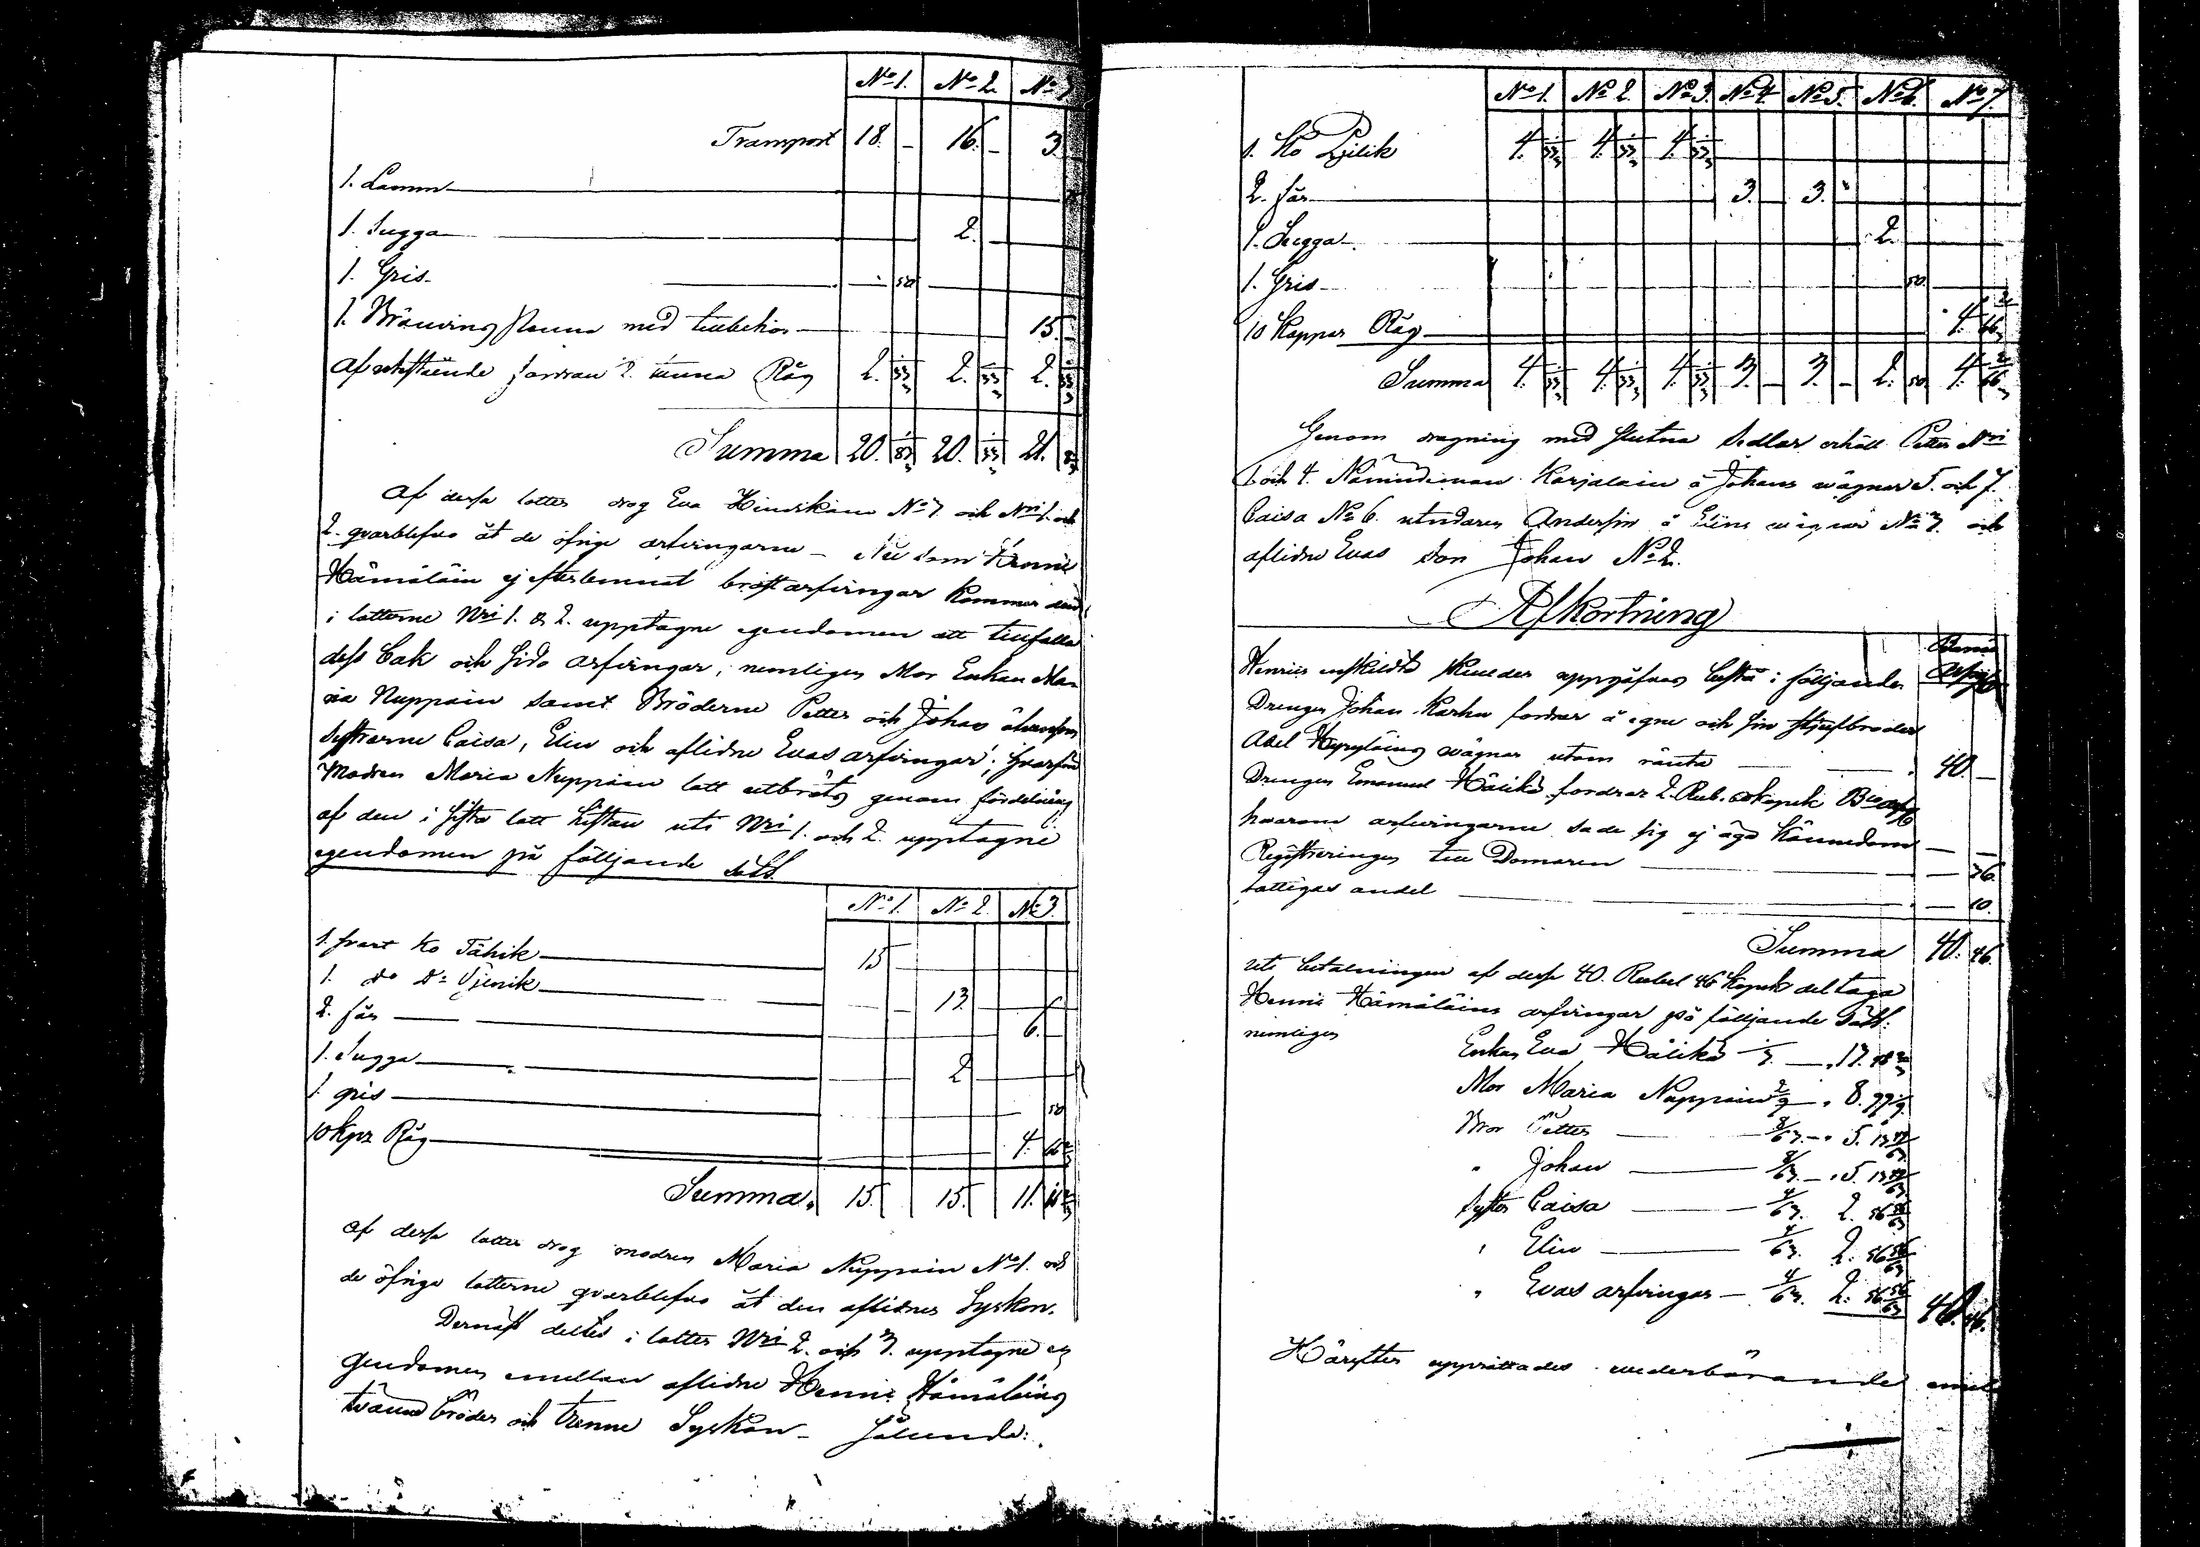 No 1. No 2. No 3
Transport 18. – 16. – 3. –
1. Lamm
1. Sugga 2. –
1. Gris 50
1. Bränvins Panna med tillbehör 15. –
Af utestående fordran 2. tunna Råg 2. 33 1/3 2. 33 1/3 2. 33 1/3
Summa 20. 83 1/3 20. 33 1/3 21.
Af dessa lotter drog Eva Hindrikina No 3 och Nri 1. och
2. qvarblefvo åt de öfriga arfvingarne – Nu som Hennric
Hämäläin ej efterlemnat bröstarfvingar kommer den
i lotterne Nri 1. & 2. upptagne egendomen att tillfalla
dess bak och sido arfvingar, nemligen Mor Enkan Ma
ria Nuppoin samt Bröderne Petter och Johan
Systrarne Caisa, Elin och aflidne Evas arfvingar; hvarför
Modren Maria Nuppoin lott utbröts genom fördelning
af den i sista lott listan uti Nri 1. och 2. upptagne
egendomen på följjande sätt
No 1. No 2. No 3.
1. svart ko Tähik 15
1. do do Ojenik 13.
2. får 6.
1. Sugga 2
1 gris 50
10 kpr Råg 4. 66 2/3
Summa 15. 15. 11.
Af dessa lotter drog modren Maria Nuppoin No 1. och
de öfrige lotterne qvarblefvo åt den aflidnes Syskon.
Dernäst deltes i lotter Nri 2. och 3. upptagne e
gendomen emellan aflidne Hennric Hämäläins
tvänne bröder och trenne Syskon – sålunda:
No 1. No 2. No 3. No 4. No 5. No 6. No 7.
1. Ko 4. 33 1/3 4. 33 1/3 4. 33 1/3
2. får 3. 3.
1. Sugga 2.
1. Gris 50.
10 Kappar Råg 4. 66 2/3
Summa 4. 33 1/3 4. 33 1/3 4. 33 1/3 3. – 3. – 2. 50. 4. 66 2/3
Genom dragning med slutna sedlar erhöll Petter Nri
1 och 4. Nämndeman Karjalain å Johans wägnar 5. och 7.
Caisa No 6. utridaren Andersin å Elins wägnar No 3. och
aflidne Evas Son Johan No 2.
Afkortning
Henrics enskildta skulder uppgåfvos bestå i följjande
Drengen Johan Karhu fordrar å egne och sin stjufbroder
Abel wägnar utom ränta 40. –
Drengen Emanuel Häikö fordrar 2. Rub. kopek
hvarom arfvingarne sade sig ej äga kännedom – –
Registreringen till Domaren – 36.
fattigas andel – 10.
Summa 40. 46.
Uti betalningen af dessa 40. Rubel 46 Kopek deltaga
Hennric Hämäläins arfvingar på följjande Sätt:
nemligen
Enkan Eva Häikö 1/3 – 13. 48 2/3
Mor Maria Nuppoin 2/9 . 8. 99 1/9
Bror Petter 8/63 – 5. 13
" Johan 8/63 – 5. 13
Syster Caisa 4/63. 2. 56 56/63
" Elin 4/63. 2. 56 56/63
" Evas arfvingar – 4/63. 2. 56 56/63 40. 46.
Härefter upprättades wederbörande